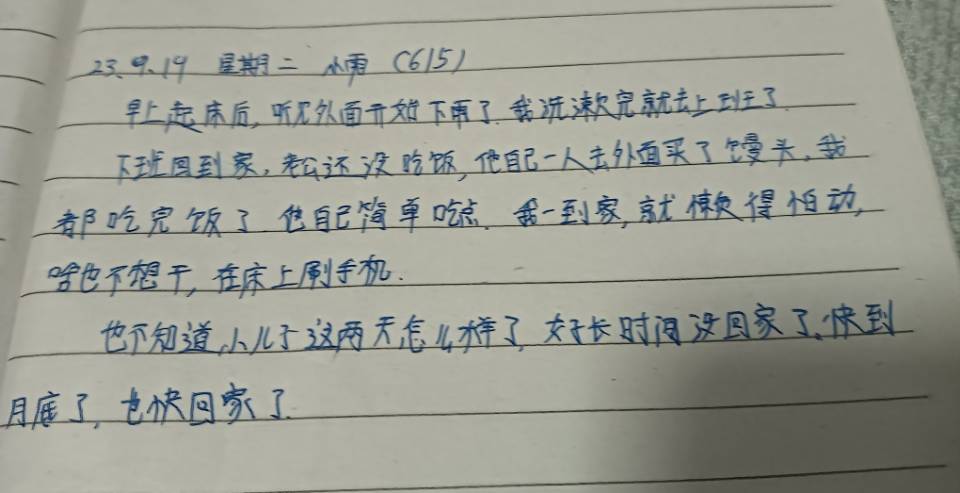 23.9.19 星期二 小雨 (615)
早上起床后,听见外面开始下雨了.我洗漱完就去上班了.
下班回到家,老公还没吃饭,他自己一人去外面买了馒头,我
都吃完饭了.他自己简单吃点.我一到家,就懒得怕动,
啥也不想干,在床上刷手机.
也不知道,小儿子这两天怎么样了,好长时间没回家了.快到
月底了,也快回家了.